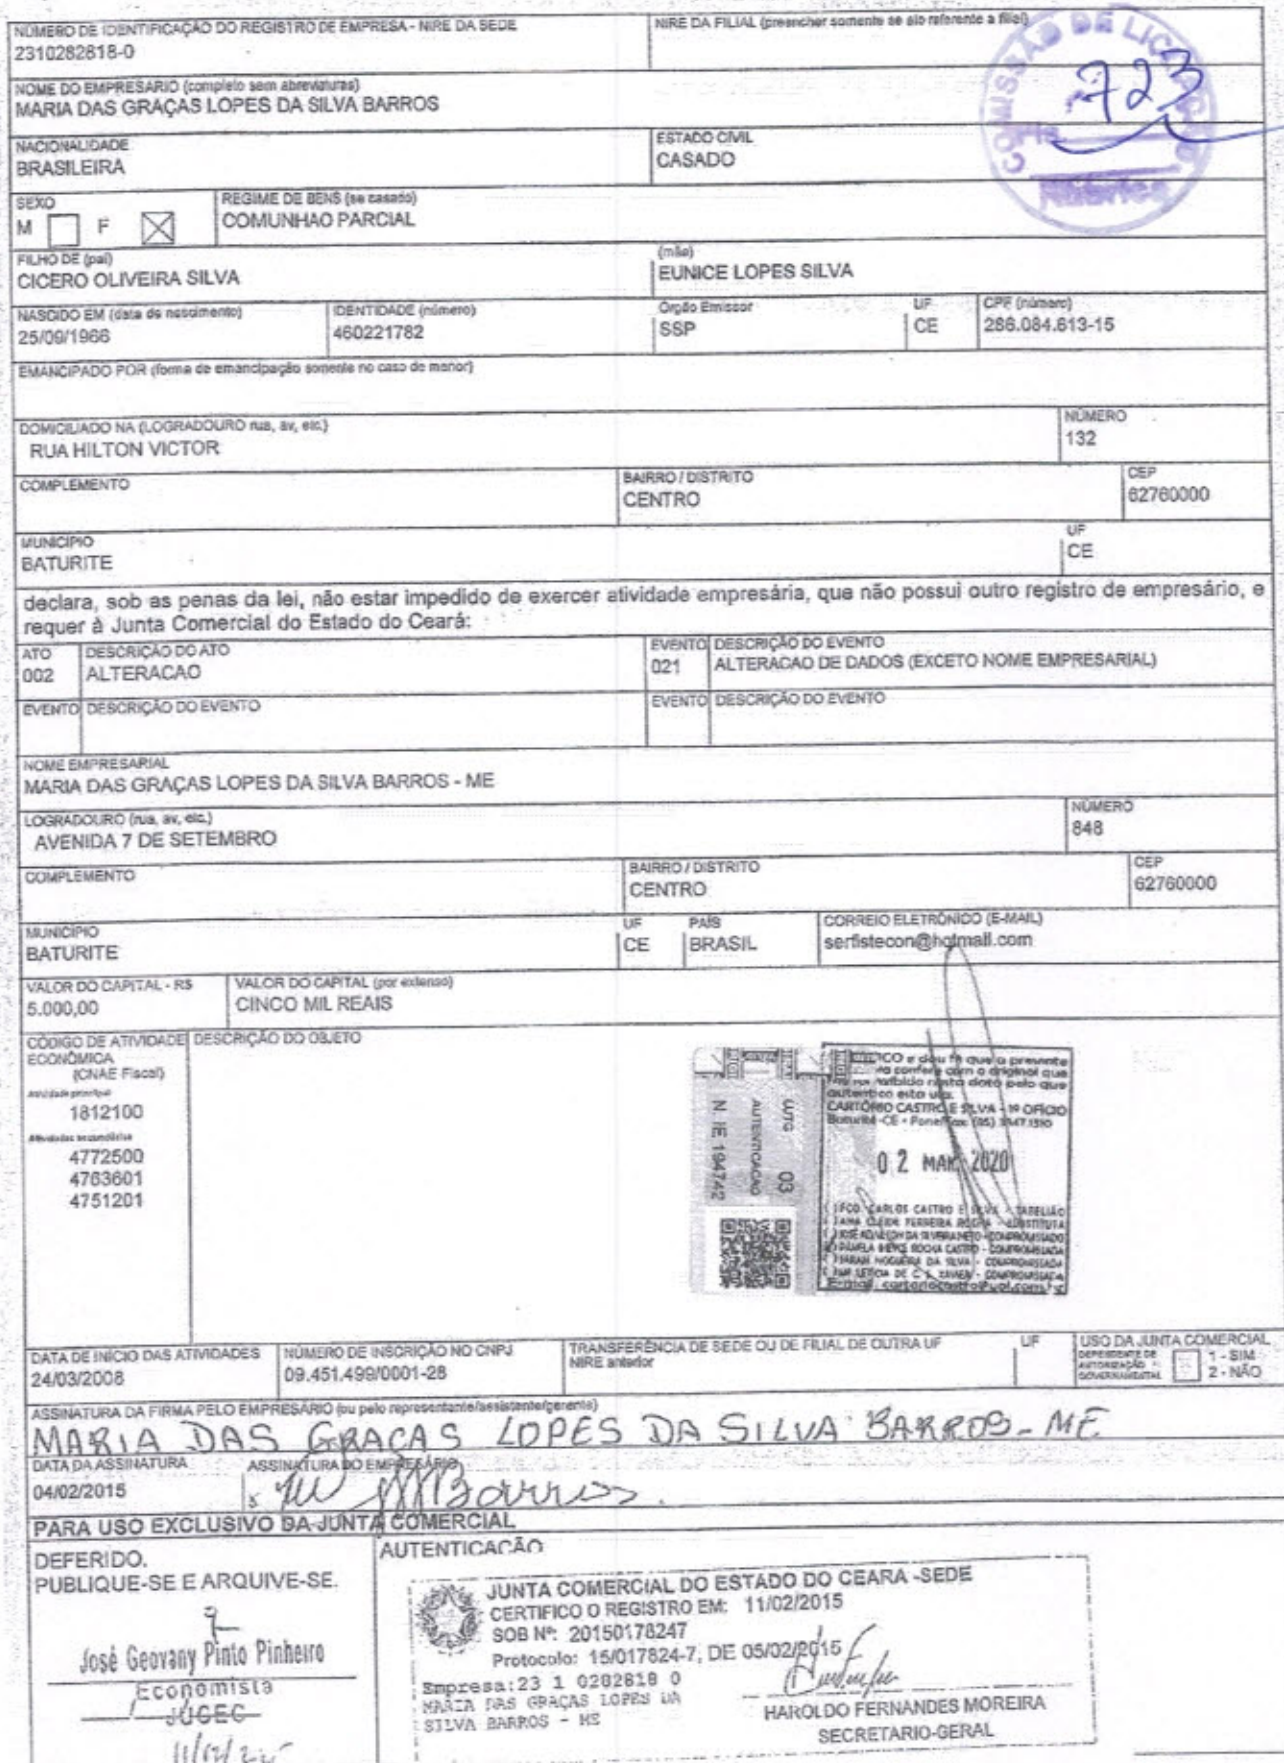 NÚMERO DE IDENTIFICAÇÃO DO REGISTRO DE EMPRESA - NIRE DA SEDE
2310282818-0
NIRE DA FILIAL (preencher somente se ato referente a filial)
COMISSÃO DE LICITAÇÃO
723
NOME DO EMPRESÁRIO (completo sem abreviaturas)
MARIA DAS GRAÇAS LOPES DA SILVA BARROS
NACIONALIDADE
BRASILEIRA
ESTADO CIVIL
CASADO
SEXO
M F
REGIME DE BENS (se casado)
COMUNHAO PARCIAL
FILHO DE (pai)
CICERO OLIVEIRA SILVA
(mãe)
EUNICE LOPES SILVA
NASCIDO EM (data de nascimento)
25/09/1966
IDENTIDADE (número)
460221782
Órgão Emissor
SSP
UF
CE
CPF (número)
286.084.613-15
EMANCIPADO POR (forma de emancipação somente no caso de menor)
DOMICILIADO NA (LOGRADOURO rua, av, etc.)
RUA HILTON VICTOR
NÚMERO
132
COMPLEMENTO
BAIRRO / DISTRITO
CENTRO
CEP
62760000
MUNICÍPIO
BATURITE
UF
CE
declara, sob as penas da lei, não estar impedido de exercer atividade empresária, que não possui outro registro de empresário, e
requer à Junta Comercial do Estado do Ceará:
ATO
002
DESCRIÇÃO DO ATO
ALTERACAO
EVENTO
021
DESCRIÇÃO DO EVENTO
ALTERACAO DE DADOS (EXCETO NOME EMPRESARIAL)
EVENTO DESCRIÇÃO DO EVENTO
EVENTO DESCRIÇÃO DO EVENTO
NOME EMPRESARIAL
MARIA DAS GRAÇAS LOPES DA SILVA BARROS - ME
LOGRADOURO (rua, av, etc.)
AVENIDA 7 DE SETEMBRO
NÚMERO
848
COMPLEMENTO
BAIRRO / DISTRITO
CENTRO
CEP
62760000
MUNICÍPIO
BATURITE
UF
CE
PAÍS
BRASIL
CORREIO ELETRÔNICO (E-MAIL)
serfistecon@hotmail.com
VALOR DO CAPITAL - R$
5.000,00
VALOR DO CAPITAL (por extenso)
CINCO MIL REAIS
CÓDIGO DE ATIVIDADE ECONÔMICA
(CNAE Fiscal)
DESCRIÇÃO DO OBJETO
Atividade principal
1812100
Atividades secundárias
4772500
4763601
4751201
AUTENTICACAO
03
N IE 194742
ICO e dou fé que a presente
confere com o original que
exibido nesta data pelo que
autentico esta via.
CARTÓRIO CASTRO E SILVA - 1º OFÍCIO
Baturité-CE
02 MAR 2020
FCO. CARLOS CASTRO E SILVA - TABELIÃO
FERREIRA ROCHA - SUBSTITUTA
ROCHA CASTRO - COMPROMISSADA
NOGUEIRA DA SILVA - COMPROMISSADA
DATA DE INÍCIO DAS ATIVIDADES
24/03/2008
NÚMERO DE INSCRIÇÃO NO CNPJ
09.451.499/0001-28
TRANSFERÊNCIA DE SEDE OU DE FILIAL DE OUTRA UF
NIRE anterior
UF
USO DA JUNTA COMERCIAL
DEPENDENTE DE
AUTORIZAÇÃO
GOVERNAMENTAL
1 - SIM
2 - NÃO
ASSINATURA DA FIRMA PELO EMPRESÁRIO (ou pelo representante/assistente/gerente)
MARIA DAS GRAÇAS LOPES DA SILVA BARROS - ME
DATA DA ASSINATURA
04/02/2015
ASSINATURA DO EMPRESÁRIO
Barros
PARA USO EXCLUSIVO DA JUNTA COMERCIAL
DEFERIDO.
PUBLIQUE-SE E ARQUIVE-SE.
José Geovany Pinto Pinheiro
Economista
JUCEC
AUTENTICAÇÃO
JUNTA COMERCIAL DO ESTADO DO CEARA -SEDE
CERTIFICO O REGISTRO EM: 11/02/2015
SOB Nº: 20150178247
Protocolo: 15/017824-7, DE 05/02/2015
Empresa:23 1 0282818 0
MARIA DAS GRAÇAS LOPES DA
SILVA BARROS - ME
HAROLDO FERNANDES MOREIRA
SECRETARIO-GERAL